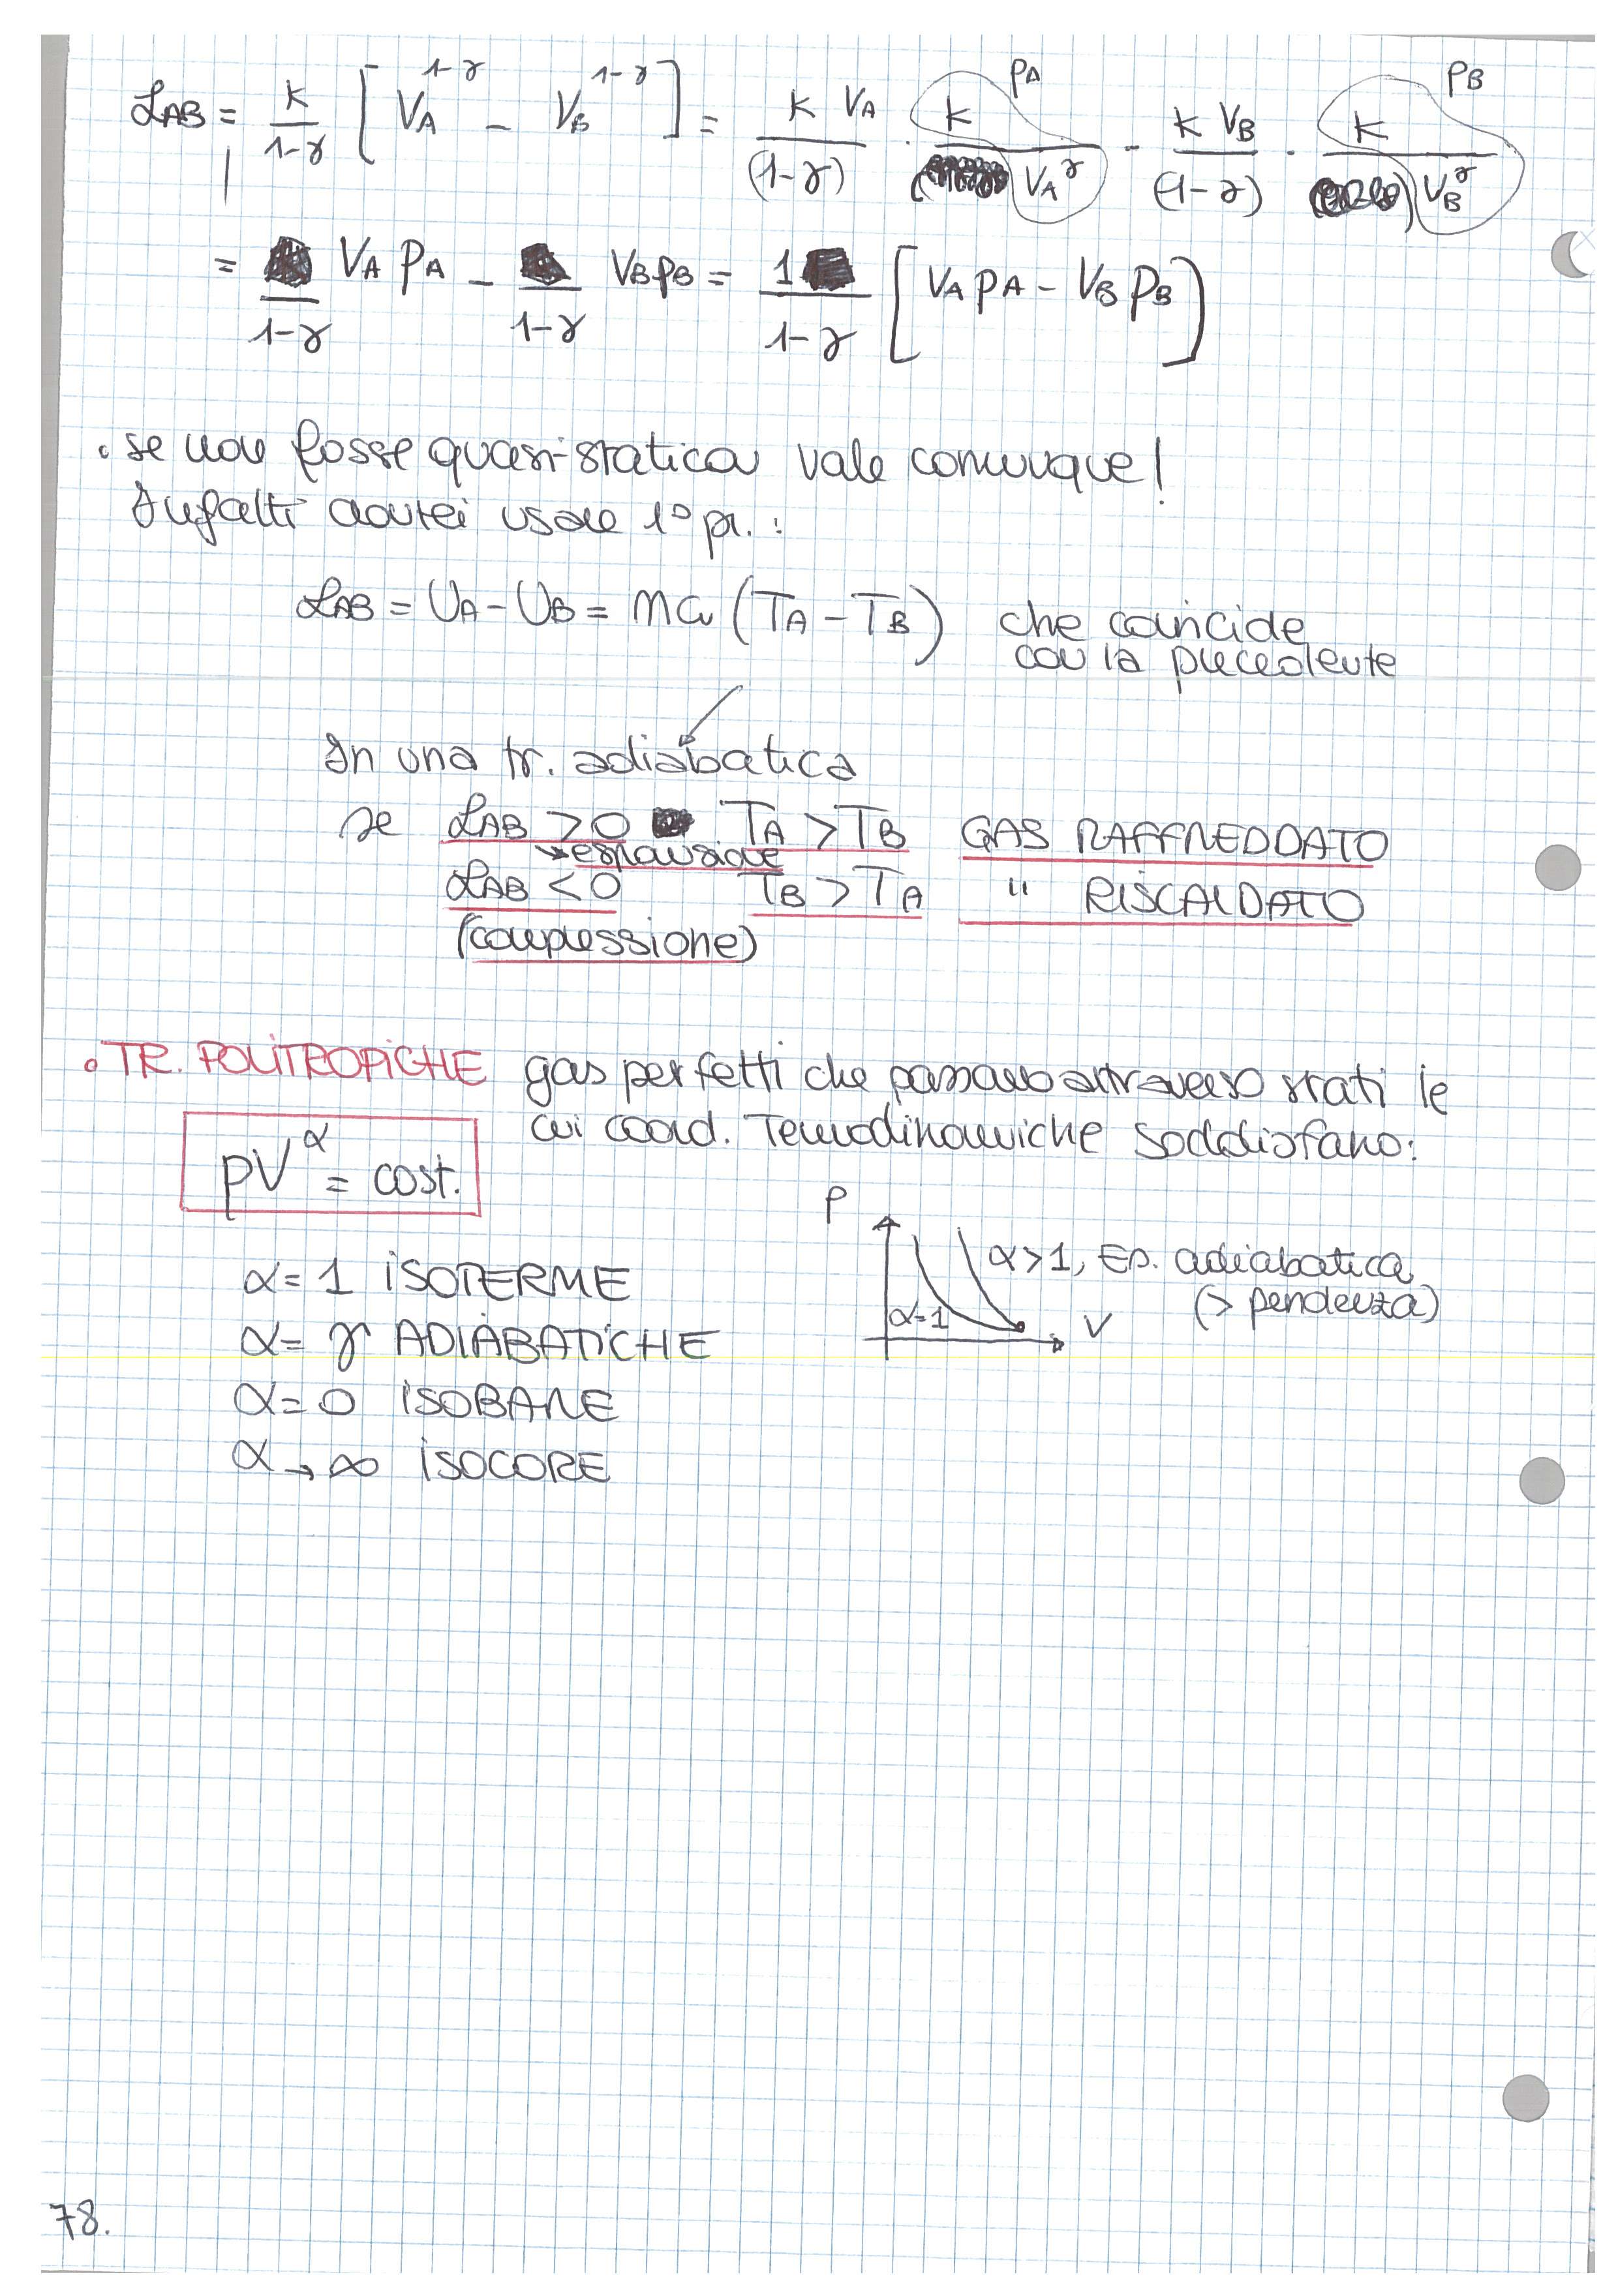 L_AB = K/(1-γ) [V_A^(1-γ) - V_B^(1-γ)] = K V_A/(1-γ) · K/V_A^γ p_A - K V_B/(1-γ) · K/V_B^γ p_B
= /(1-γ) V_A p_A - /(1-γ) V_B p_B = 1/(1-γ) [V_A p_A - V_B p_B]
• se non fosse quasi-statica vale comunque!
Infatti dovrei usare 1° pr.:
L_AB = U_A - U_B = n c_v (T_A - T_B) che coincide
con la precedente
In una tr. adiabatica
se L_AB > 0 T_A > T_B GAS RAFFREDDATO
espansione
L_AB < 0 T_B > T_A " RISCALDATO
(compressione)
• TR. POLITROPICHE gas perfetti che passano attraverso stati le
cui coord. Termodinamiche soddisfano:
pV^α = cost.
P
α = 1 ISOTERME
α>1, Es. adiabatica
(> pendenza)
α=1
V
α = γ ADIABATICHE
α = 0 ISOBARE
α → ∞ ISOCORE
78.